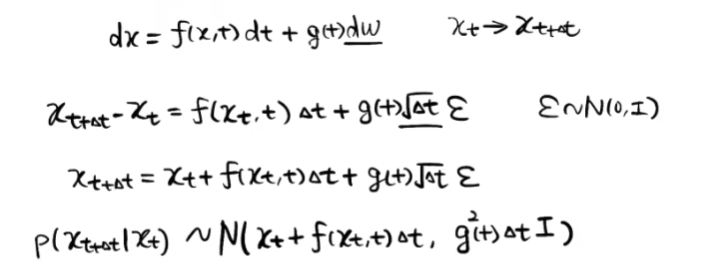 dx = f(x,t) dt + g(t)dw    x_t → x_{t+Δt}
x_{t+Δt} - x_t = f(x_t, t) Δt + g(t)√Δt ε    ε ~ N(0, I)
x_{t+Δt} = x_t + f(x_t, t) Δt + g(t) √Δt ε
p(x_{t+Δt} | x_t) ~ N(x_t + f(x_t, t) Δt, g²(t) Δt I)